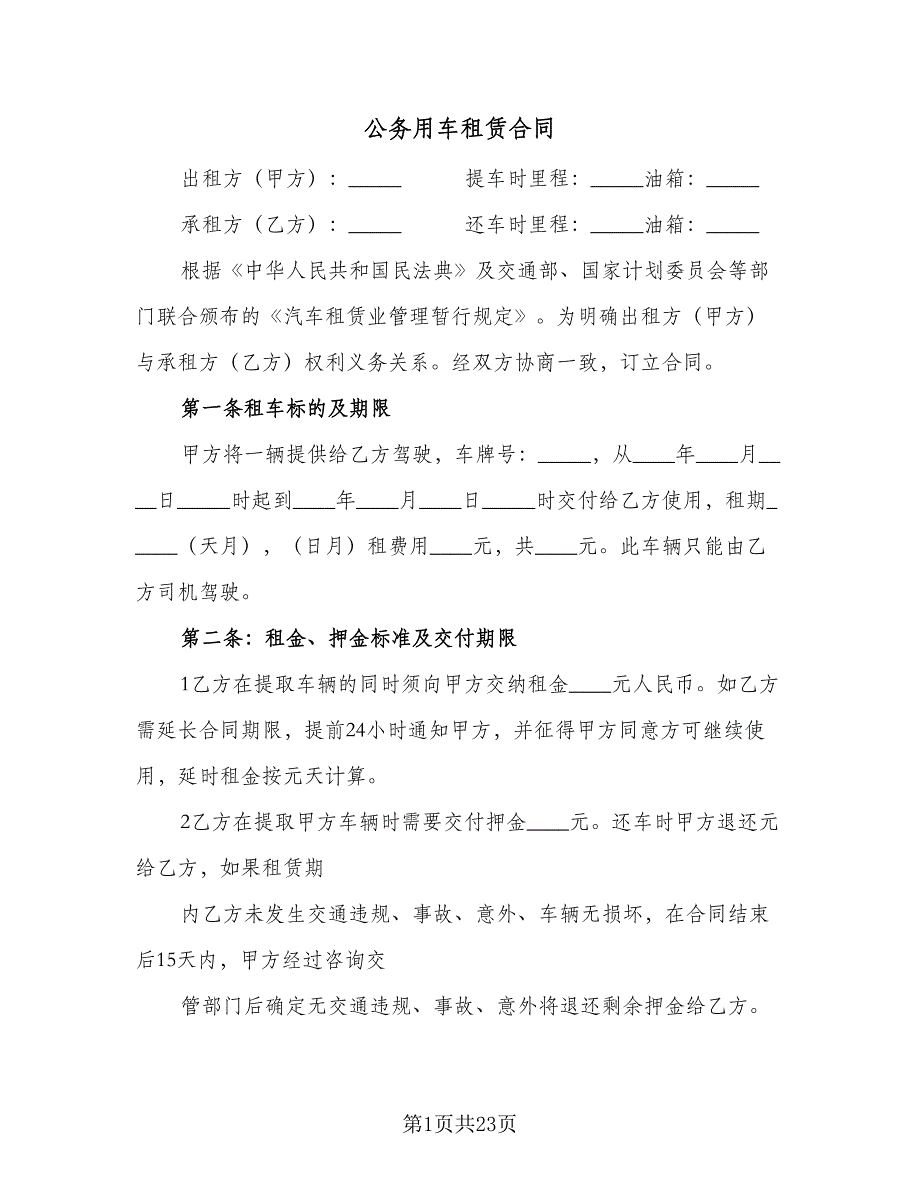 公务用车租赁合同
出租方（甲方）：_____ 提车时里程：_____油箱：_____
承租方（乙方）：_____ 还车时里程：_____油箱：_____
根据《中华人民共和国民法典》及交通部、国家计划委员会等部
门联合颁布的《汽车租赁业管理暂行规定》。为明确出租方（甲方）
与承租方（乙方）权利义务关系。经双方协商一致，订立合同。
第一条租车标的及期限
甲方将一辆提供给乙方驾驶，车牌号：_____，从____年____月__
__日_____时起到____年____月____日_____时交付给乙方使用，租期_
____（天月），（日月）租费用____元，共____元。此车辆只能由乙
方司机驾驶。
第二条：租金、押金标准及交付期限
1乙方在提取车辆的同时须向甲方交纳租金____元人民币。如乙方
需延长合同期限，提前24小时通知甲方，并征得甲方同意方可继续使
用，延时租金按元天计算。
2乙方在提取甲方车辆时需要交付押金____元。还车时甲方退还元
给乙方，如果租赁期
内乙方未发生交通违规、事故、意外、车辆无损坏，在合同结束
后15天内，甲方经过咨询交
管部门后确定无交通违规、事故、意外将退还剩余押金给乙方。
第1页共23页